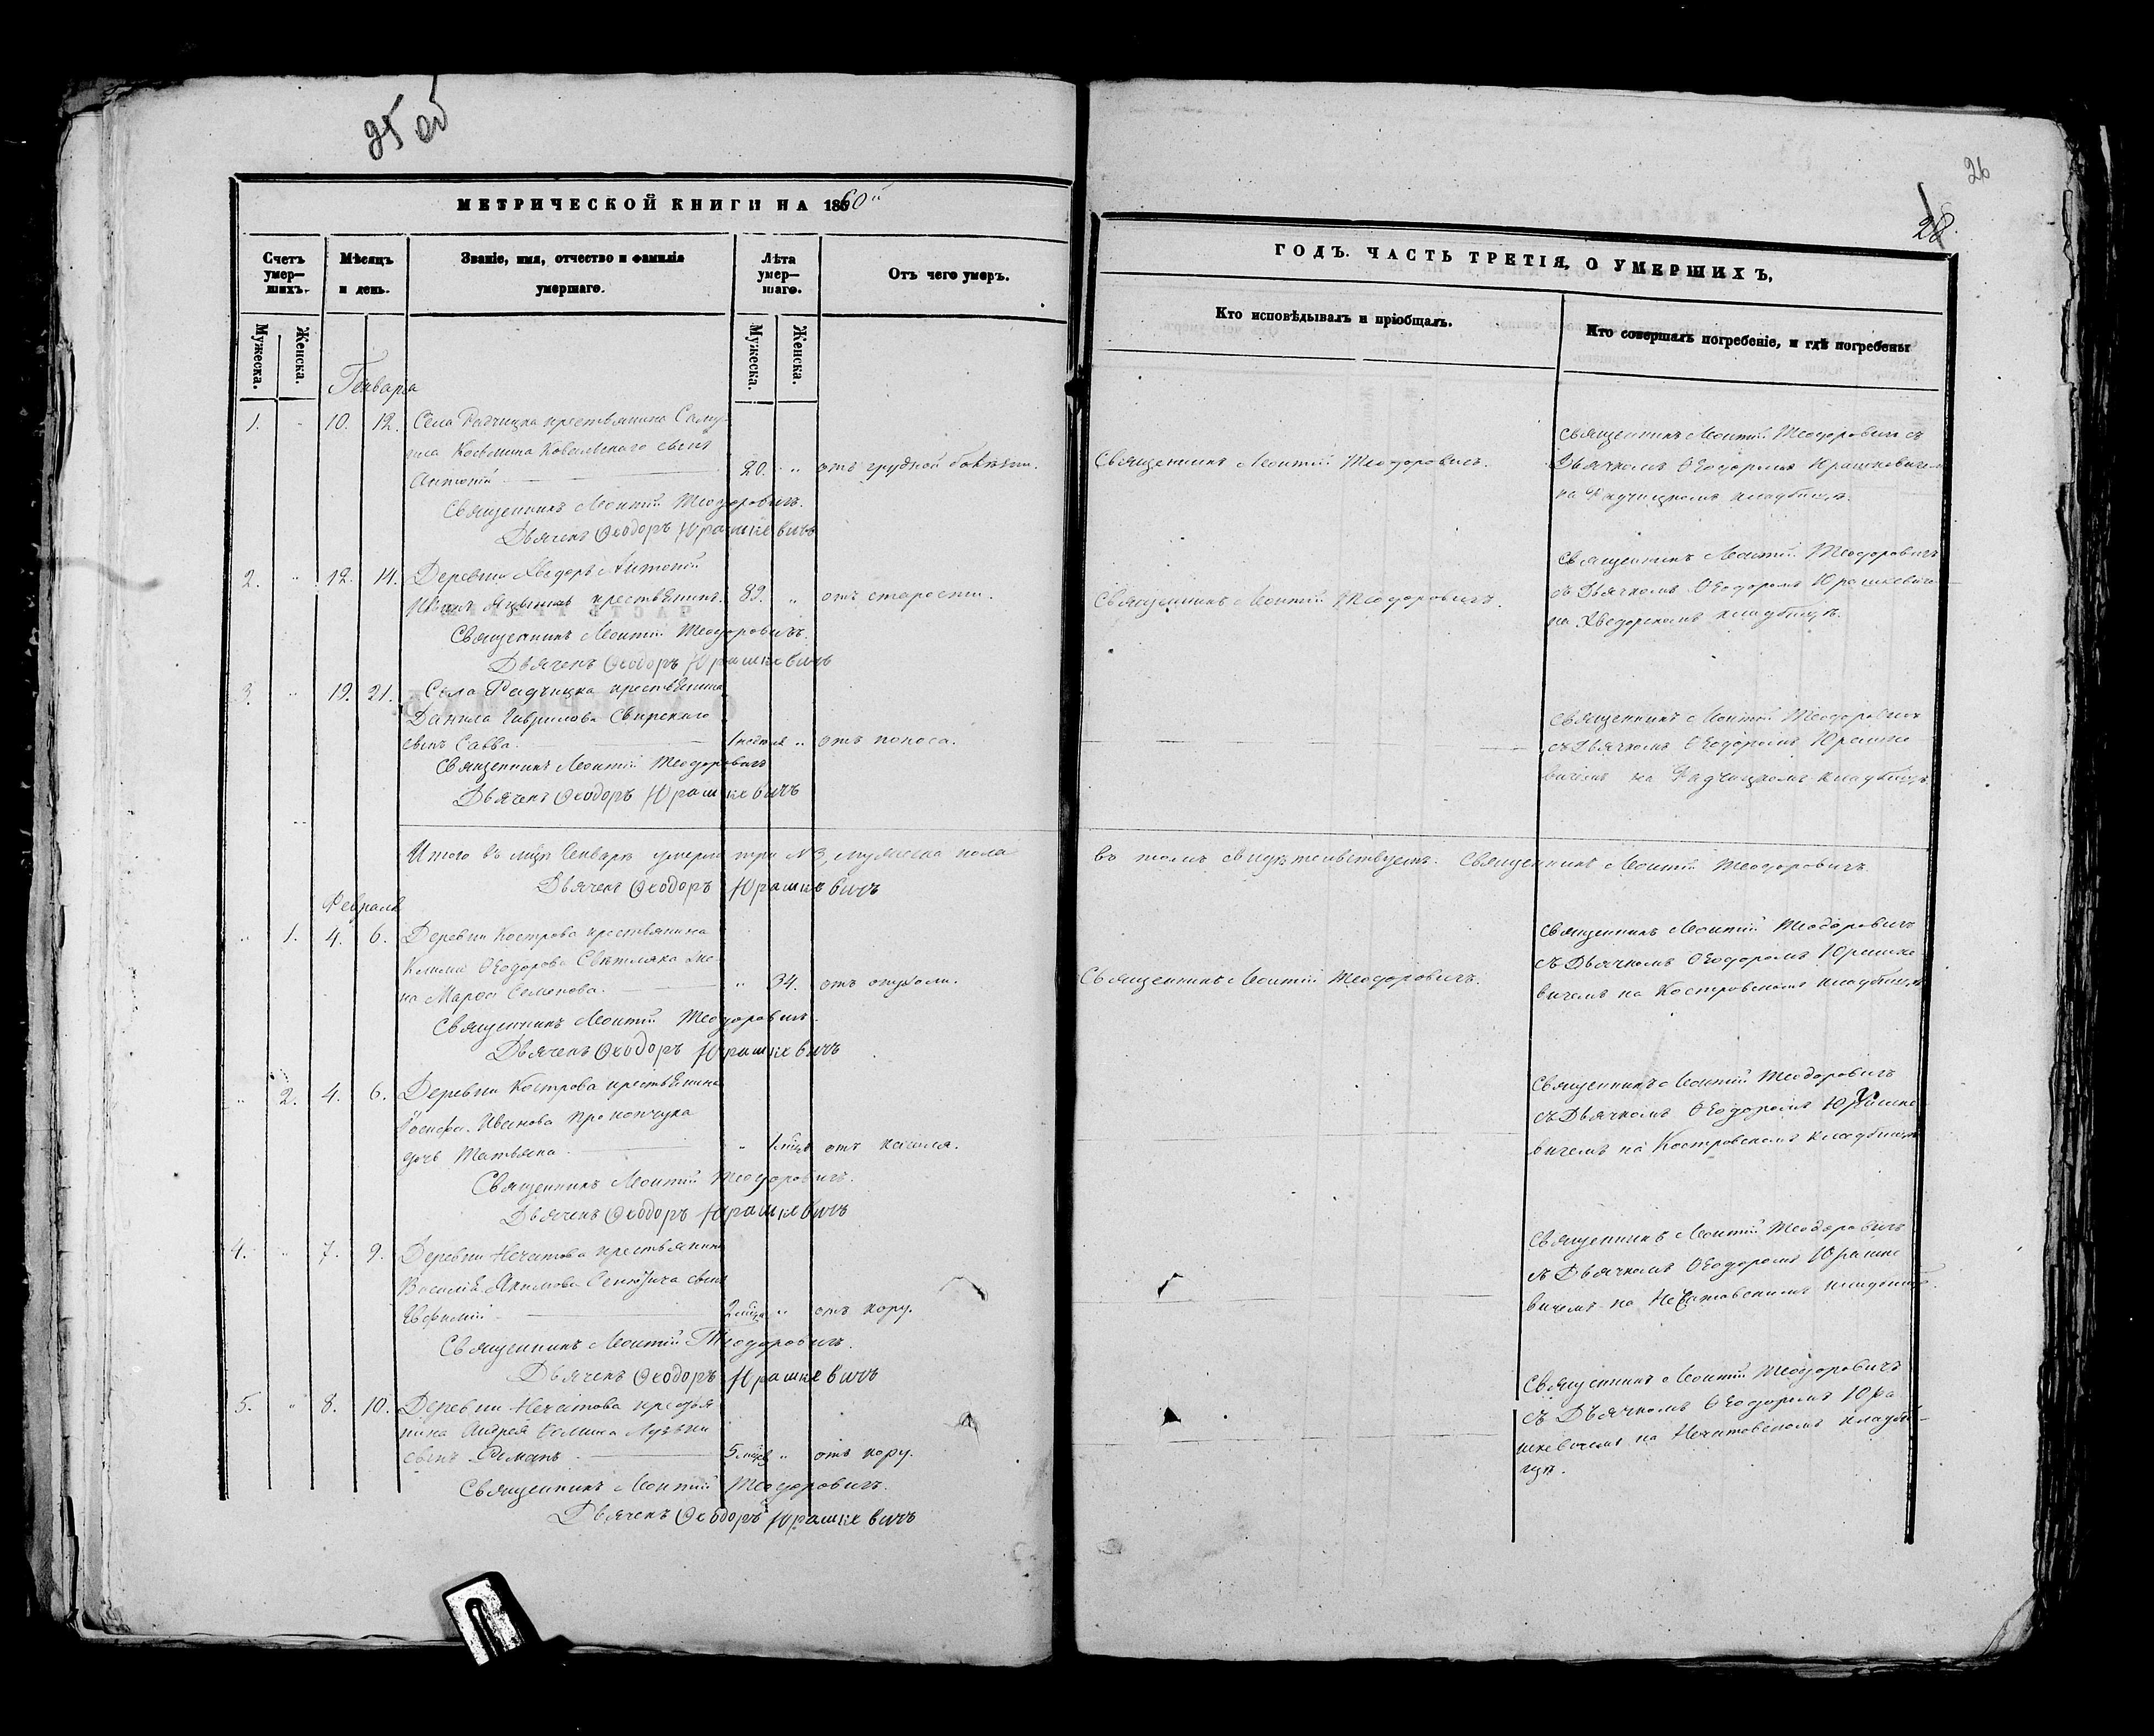 25 об
МЕТРИЧЕСКОЙ КНИГИ НА 1860й
Счетъ умер— шихъ.
Мѣсяцъ и день.
Званіе, имя, отчество и фамилія умершаго.
Лѣта умер— шаго.
Отъ чего умеръ.
Мужеска.
Женска.
Мужеска.
Женска.
Генваря
1. " 10. 12. Села Радчицка крестьянина
Ковальскаго сынъ
Антоній 20. " отъ грудной болѣзни.
Священникъ Леонтій Теодоровичъ.
Дьячекъ Ѳеодоръ Юрашкевичъ
2. " 12. 14. Деревни Хведоръ Антоній
крестьянинъ. 89. " отъ старости.
Священникъ Леонтій Теодоровичъ.
Дьячекъ Ѳеодоръ Юрашкевичъ
3. " 19. 21. Села Радчицка крестьянина
Данила Гаврилова Свирскаго
сынъ Савва. 1 недѣля " отъ поноса.
Священникъ Леонтій Теодоровичъ
Дьячекъ Ѳеодоръ Юрашкевичъ
Итого въ мцѣ Генварѣ умерли три № 3, мужеска пола
Дьячекъ Ѳеодоръ Юрашкевичъ
Февраля
" 1. 4. 6. Деревни Кострова крестьянина
Клима Ѳеодорова Свѣтляка же-
на Марѳа Семенова. " 34. отъ опухоли.
Священникъ Леонтій Теодоровичъ.
Дьячекъ Ѳеодоръ Юрашкевичъ
" 2. 4. 6. Деревни Кострова крестьянина
Іосифа Иванова Прокопчука
дочь Татьяна. " 1 мцъ отъ кашля.
Священникъ Леонтій Теодоровичъ.
Дьячекъ Ѳеодоръ Юрашкевичъ
4. " 7. 9. Деревни Нечатова крестьянина
Василія Якимова сынъ
Евфимій 2 мцa " отъ кору.
Священникъ Леонтій Теодоровичъ.
Дьячекъ Ѳеодоръ Юрашкевичъ
5. " 8. 10. Деревни Нечатова крестья
нина Андрея
сынъ Романъ 5 мцв " отъ кору.
Священникъ Леонтій Теодоровичъ.
Дьячекъ Ѳеодоръ Юрашкевичъ
26
28
ГОДЪ. ЧАСТЬ ТРЕТІЯ, О УМЕРШИХЪ,
Кто исповѣдывалъ и пріобщалъ.
Кто совершалъ погребеніе, и гдѣ погребены
Священникъ Леонтій Теодоровичъ.
Священникъ Леонтій Теодоровичъ съ
Дьячкомъ Ѳеодоромъ Юрашкевичемъ
на Радчицкомъ кладбищѣ.
Священникъ Леонтій Теодоровичъ.
Священникъ Леонтій Теодоровичъ
съ Дьячкомъ Ѳеодоромъ Юрашкевичемъ
на Хведорскомъ кладбищѣ.
Священникъ Леонтій Теодоровичъ
съ Дьячкомъ Ѳеодоромъ Юрашке
вичемъ на Радчицкомъ кладбищѣ
въ томъ свидѣтельствуетъ: Священникъ Леонтій Теодоровичъ.
Священникъ Леонтій Теодоровичъ.
Священникъ Леонтій Теодоровичъ
съ Дьячкомъ Ѳеодоромъ Юрашке
вичемъ на Костровскомъ кладбищѣ
Священникъ Леонтій Теодоровичъ
съ Дьячкомъ Ѳеодоромъ Юрашке
вичемъ на Костровскомъ кладбищѣ
Священникъ Леонтій Теодоровичъ
съ Дьячкомъ Ѳеодоромъ Юрашке
вичемъ на Нечатовскомъ кладбищѣ.
Священникъ Леонтій Теодоровичъ
съ Дьячкомъ Ѳеодоромъ Юра
шкевичемъ на Нечатовскомъ кладби-
щѣ.